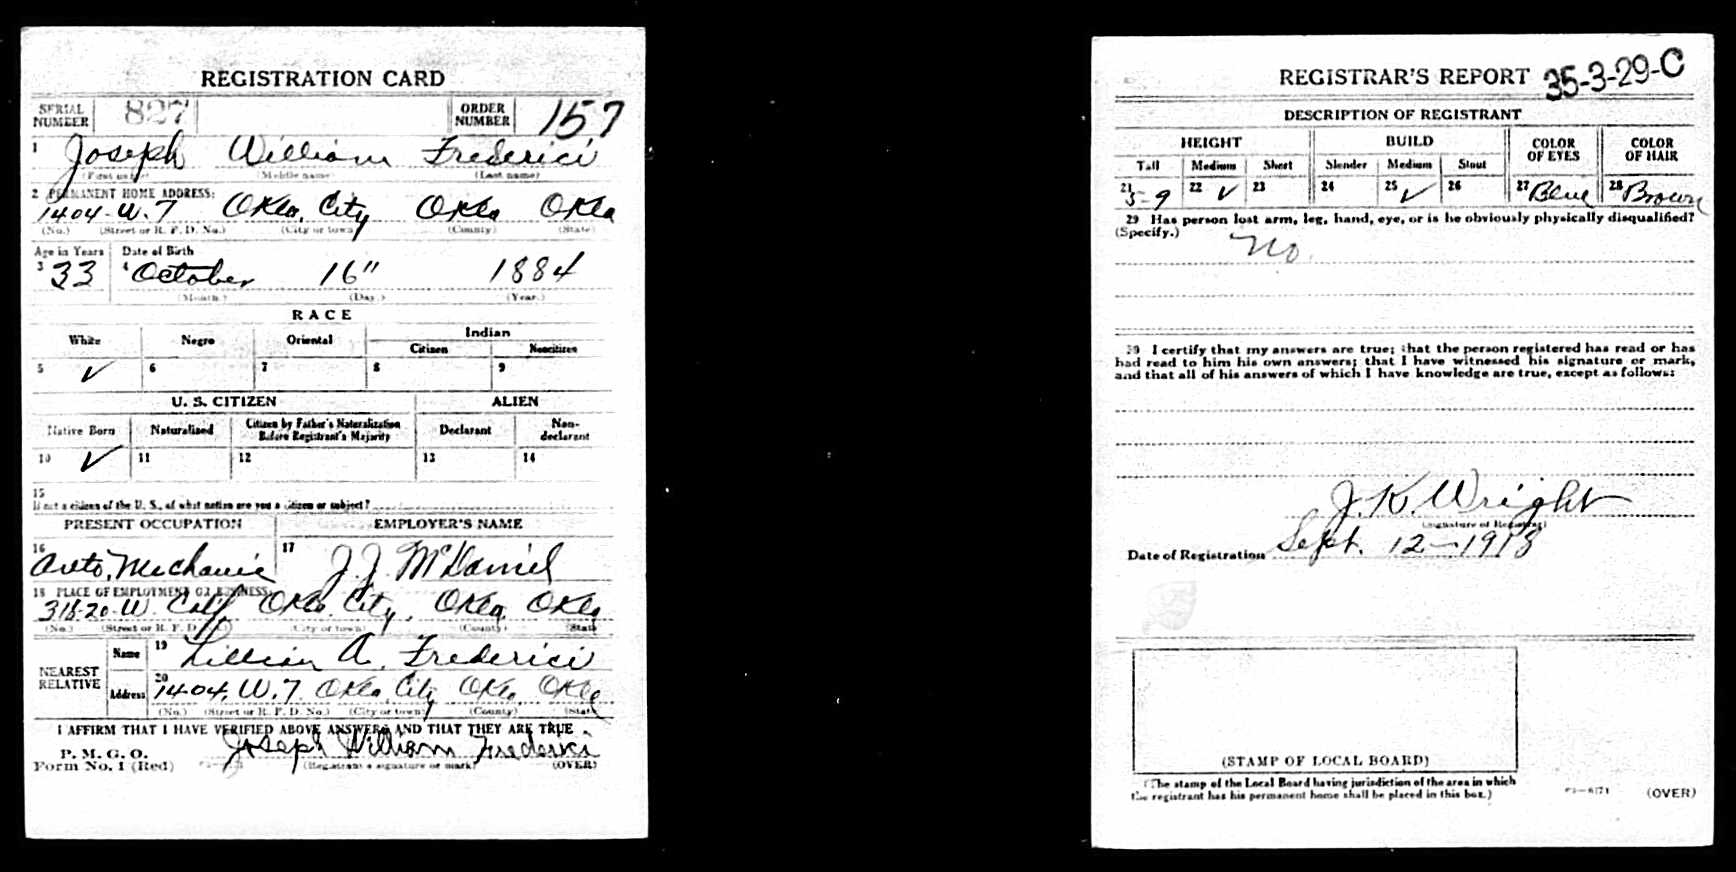 REGISTRATION CARD
SERIAL NUMBER 827 ORDER NUMBER 157
1 Joseph William Frederici
(First name) (Middle name) (Last name)
2 PERMANENT HOME ADDRESS:
1404 W. 7 Okla. City Okla Okla
(No.) (Street or R. F. D. No.) (City or town) (County) (State)
Age in Years Date of Birth
3 33 4 October 16" 1884
(Month.) (Day.) (Year.)
RACE
White Negro Oriental Indian
Citizen Noncitizen
5 ✓ 6 7 8 9
U. S. CITIZEN ALIEN
Native Born Naturalized Citizen by Father's Naturalization Before Registrant's Majority Declarant Non-declarant
10 ✓ 11 12 13 14
15
If not a citizen of the U. S., of what nation are you a citizen or subject?
PRESENT OCCUPATION EMPLOYER'S NAME
16 Auto. Mechanic 17 J. J. McDaniel
18 PLACE OF EMPLOYMENT OR BUSINESS:
316-20-W. Calf Okla. City, Okla. Okla
(No.) (Street or R. F. D. No.) (City or town) (County) (State)
NEAREST RELATIVE
Name 19 Lillian A. Frederici
Address 20 1404. W. 7. Okla City Okla. Okla
(No.) (Street or R. F. D. No.) (City or town) (County) (State)
I AFFIRM THAT I HAVE VERIFIED ABOVE ANSWERS AND THAT THEY ARE TRUE
P. M. G. O.
Form No. 1 (Red) Joseph William Frederici
(Registrant's signature or mark) (OVER)
REGISTRAR'S REPORT 35-3-29-C
DESCRIPTION OF REGISTRANT
HEIGHT BUILD COLOR OF EYES COLOR OF HAIR
Tall Medium Short Slender Medium Stout
21 5-9 22 ✓ 23 24 25 ✓ 26 27 Blue 28 Brown
29 Has person lost arm, leg, hand, eye, or is he obviously physically disqualified?
(Specify.) No.
30 I certify that my answers are true; that the person registered has read or has
had read to him his own answers; that I have witnessed his signature or mark,
and that all of his answers of which I have knowledge are true, except as follows:
J. K. Wright
(Signature of Registrar)
Date of Registration Sept. 12—1918
(STAMP OF LOCAL BOARD)
(The stamp of the Local Board having jurisdiction of the area in which
the registrant has his permanent home shall be placed in this box.)
(OVER)